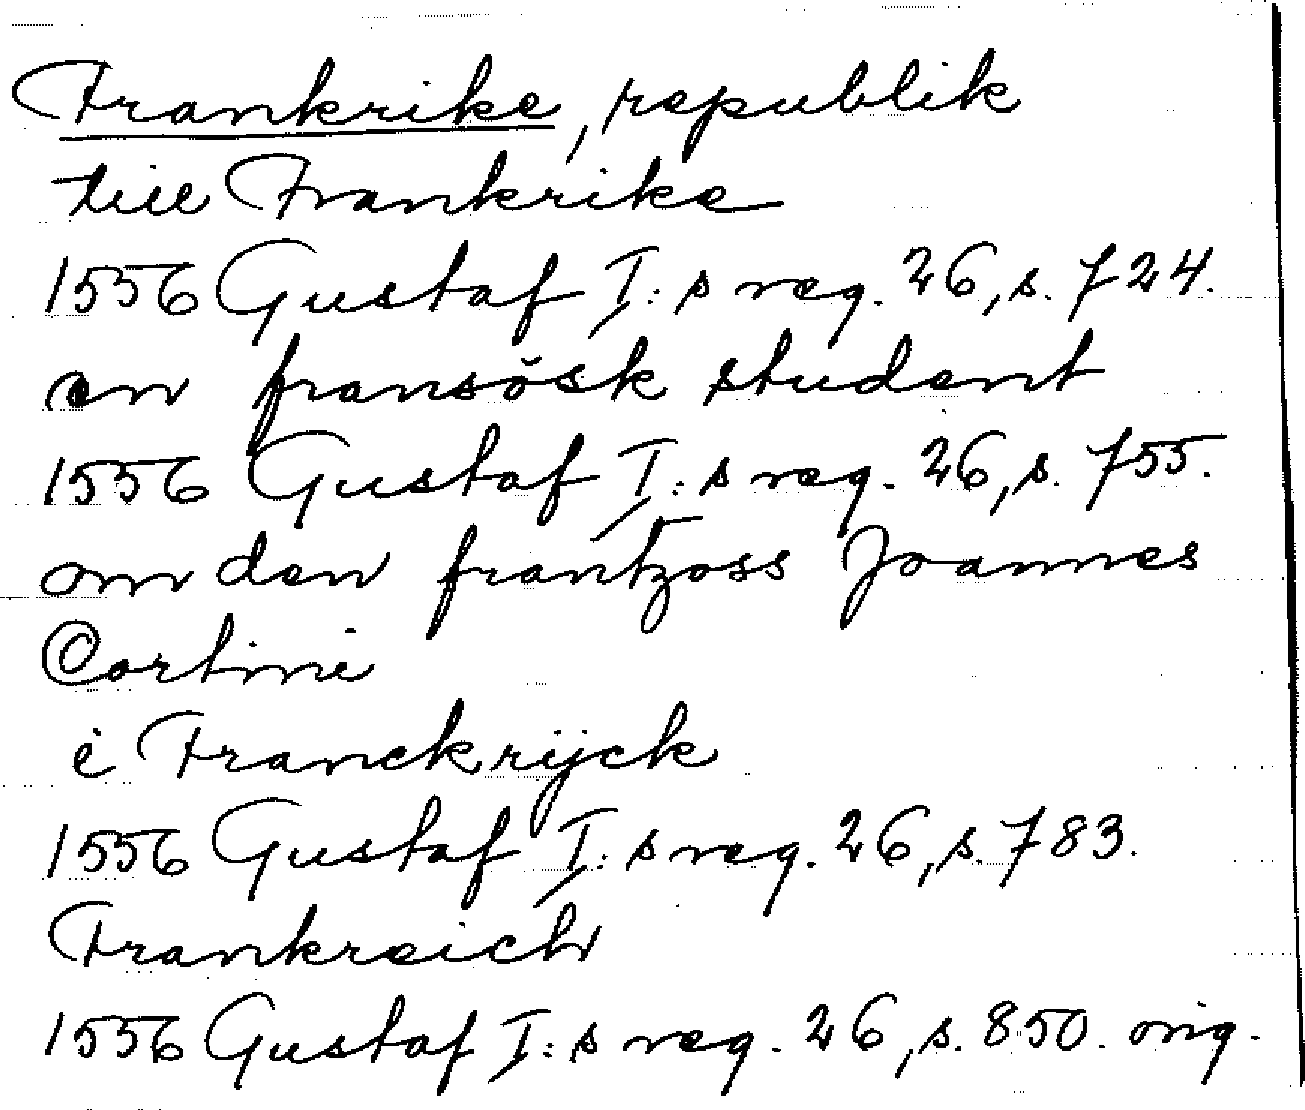 Frankrike, republik
till Frankrike
1556 Gustaf I:s reg. 26, s. 724.
en fransösk student
1556 Gustaf I:s reg. 26, s. 755.
om den frantzoss Joannes
Cortini
i Franckrijck
1556 Gustaf I:s reg. 26, s. 783.
Frankreich
1556 Gustaf I:s reg. 26, s. 850. orig.